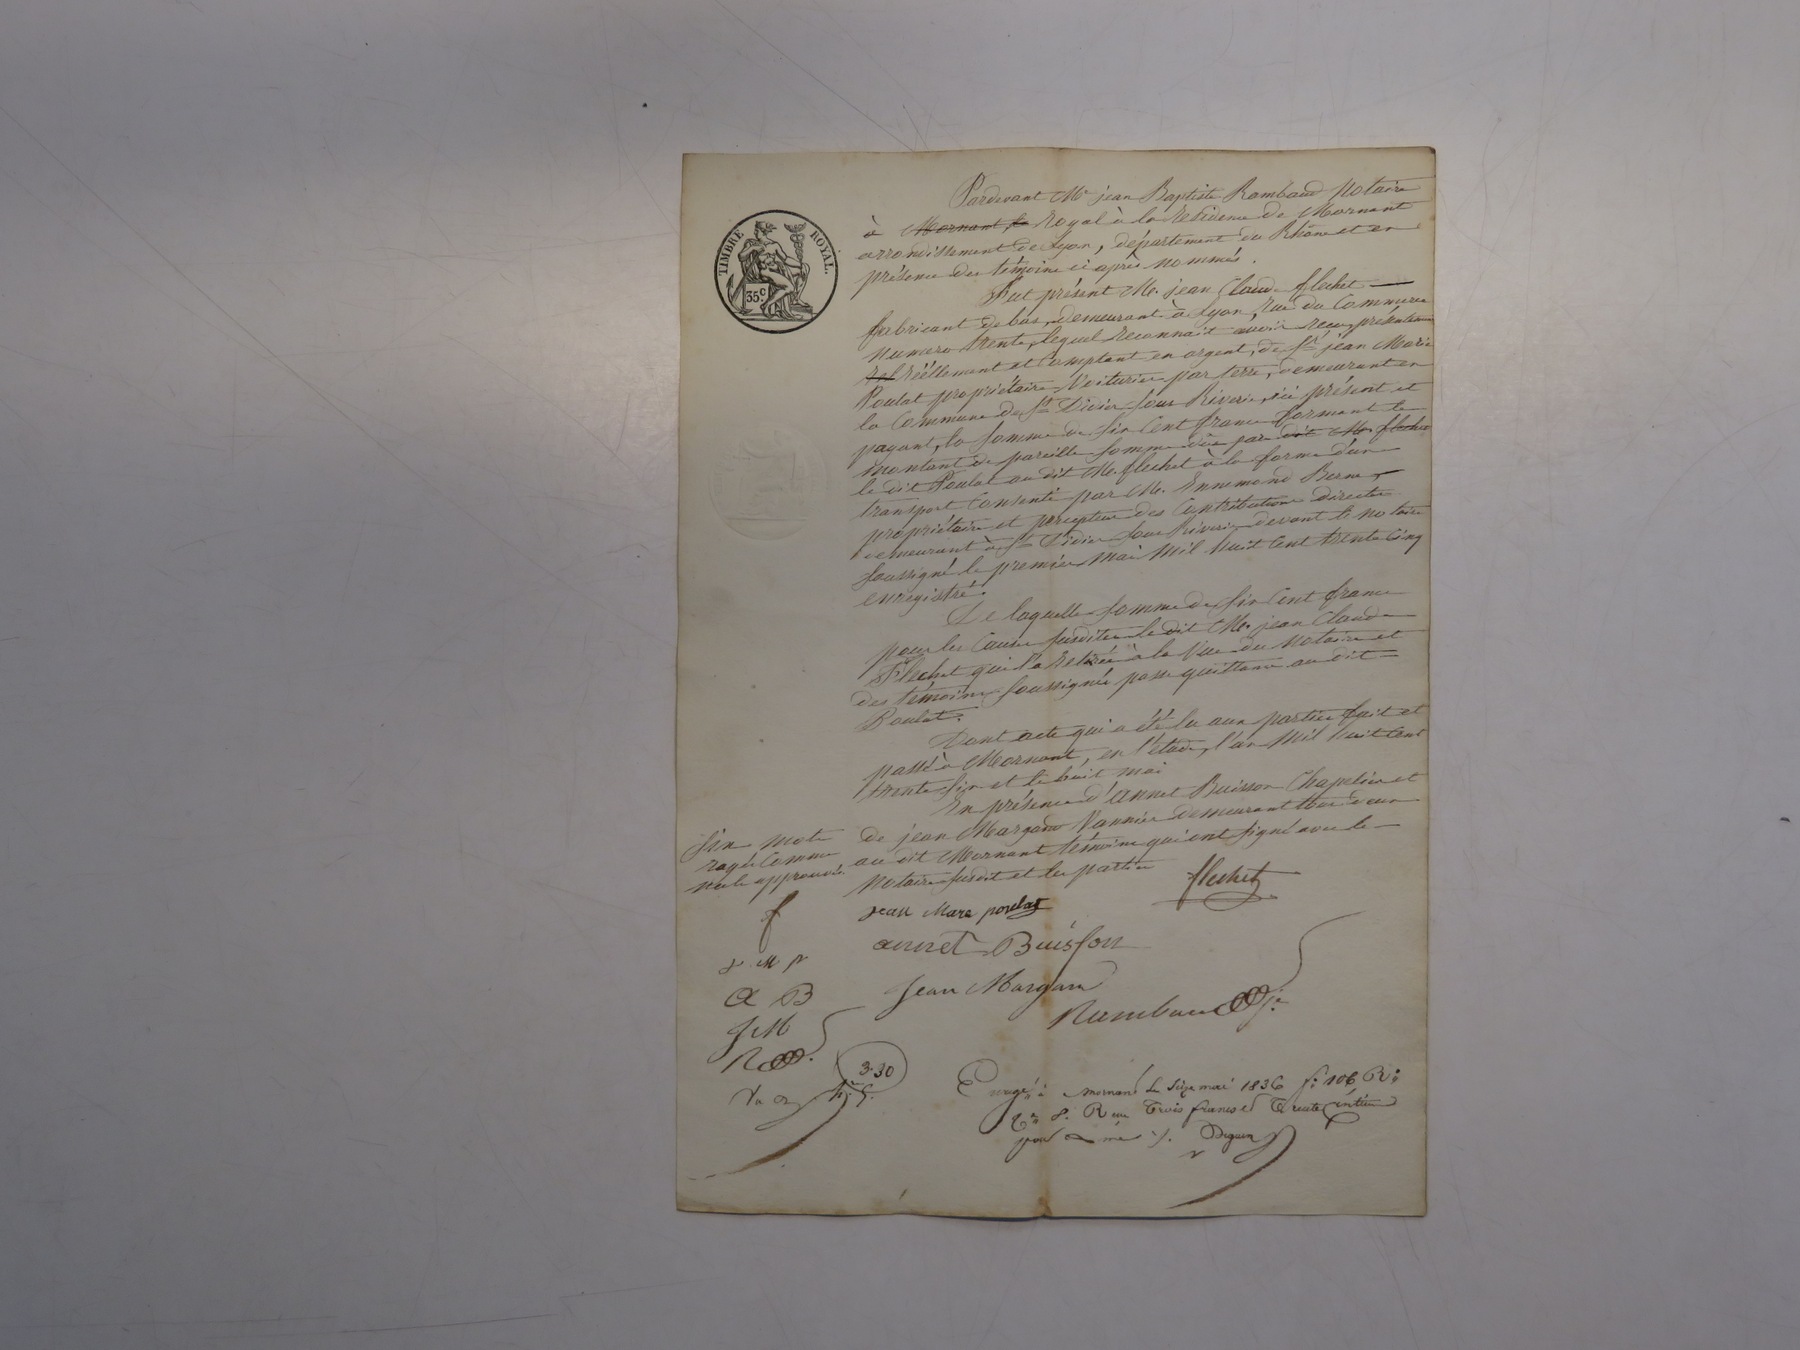 TIMBRE ROYAL.
35c
Pardevant Me jean Baptiste Rambaud Notaire
à Mornant la Royal à la Résidence de Mornant
arrondissement de Lyon, département du Rhône et en
présence des témoins ci après nommés.
Fut présent M. jean Claude flechet
fabricant de bas, demeurant à Lyon, Rue du Commerce
Numero trente, lequel reconnait avoir reçu, présentement
Réel Réellement et Comptant en argent, de Sr jean Marie
Poulat propriétaire Voiturier par terre, demeurant en
la Commune de St Didier Sous Riverie, ici présent et
payant, la Somme de Six Cent francs formant le
montant de pareille Somme dûe par dit M. flechet
le dit Poulat au dit M. flechet à la forme d'un
transport Consenti par M. Ennemond Berne,
propriétaire et percepteur des Contributions directes
demeurant à St Didier Sous Riverie devant le Notaire
Soussigné le premier Mai Mil huit Cent trente Cinq
enregistré.
De laquelle Somme de Six Cent francs
pour les Causes Susdites le dit M. jean Claude
Flechet qui l'a retirée à la Vue du Notaire et
des témoins Soussignés passe quittance au dit
Poulat.
Dont acte qui a été lu aux parties fait et
passé à Mornant, en l'étude, l'an Mil huit Cent
trente Six et le huit mai
En présence d'annet Buisson Chapelier et
de jean Margand Vannier demeurant tous deux
au dit Mornant témoins qui ont Signé avec le
Notaire Susdit et les parties
Six mots
rayés Comme
nuls approuvés.
flechet
f
jean Mare poulat
J M P
annet Buisson
A B
Jean Margand
J M
Rambaud
R
3.30
Enregé à Mornant le Seize mai 1836 fo 106 Ro
Ce 8. Reçu Trois francs et Trente centimes
Deguen